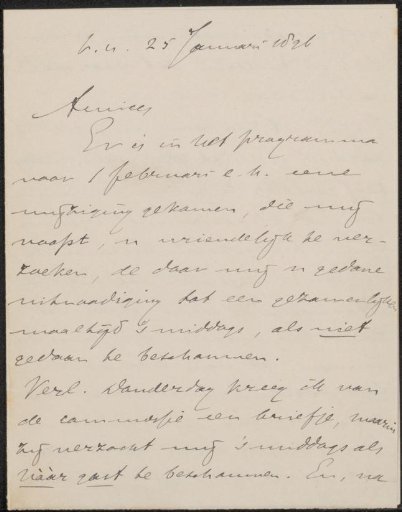 b. u. 25 Januari 1896
Amices
Er is in het programma
voor 1 februari e. k. eene
wijziging gekomen, die mij
noopt, u vriendelijk te ver-
zoeken, de door mij u gedane
uitnoodiging tot een gezamenlijken
maaltijd 's middags, als niet
gedaan te beschouwen.
Verl. Donderdag kreeg ik van
de commissie een briefje, waarin
zij verzocht mij 's middags als
háár gast te beschouwen. En, na